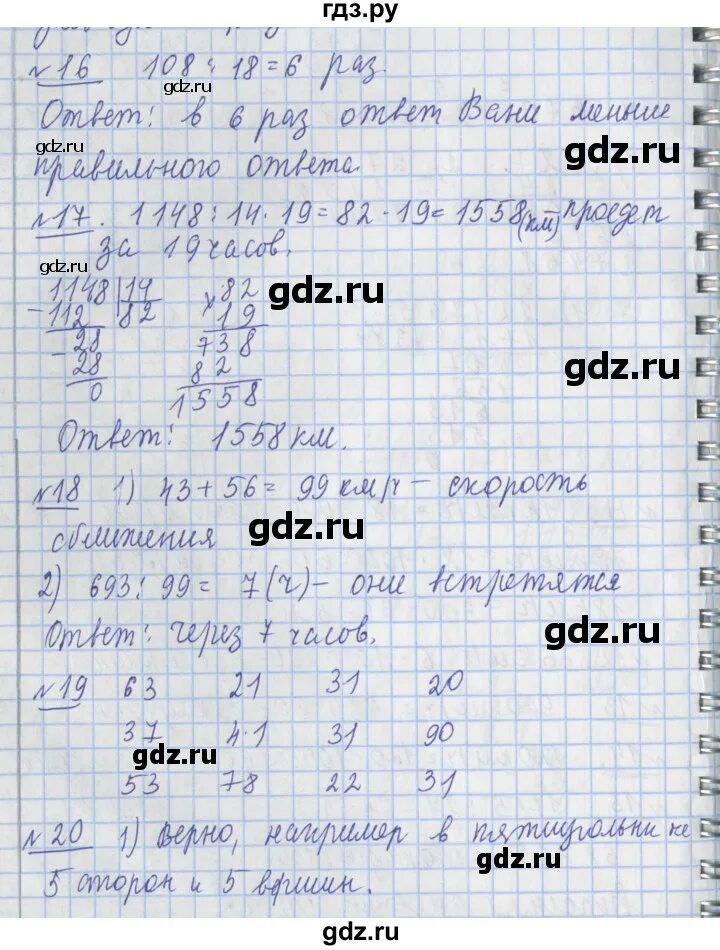 гдз.ру
№16 108 : 18 = 6 раз.
gdz.ru
Ответ: в 6 раз ответ Вани меньше
gdz.ru
правильного ответа.
№17. 1148 : 14 · 19 = 82 · 19 = 1558 (км) проедет
gdz.ru
за 19 часов.
gdz.ru
1148 | 14 × 82
- 112 82 19
- 28 738
28 82
0 1558
gdz.ru
Ответ: 1558 км.
№18 1) 43 + 56 = 99 км/ч – скорость
gdz.ru
сближения
2) 693 : 99 = 7 (ч) – они встретятся
Ответ: через 7 часов.
gdz.ru
№19 63 21 31 20
37 4·1 31 90
gdz.ru
53 78 22 31
№20 1) Верно, например в пятиугольнике
gdz.ru
5 сторон и 5 вершин.